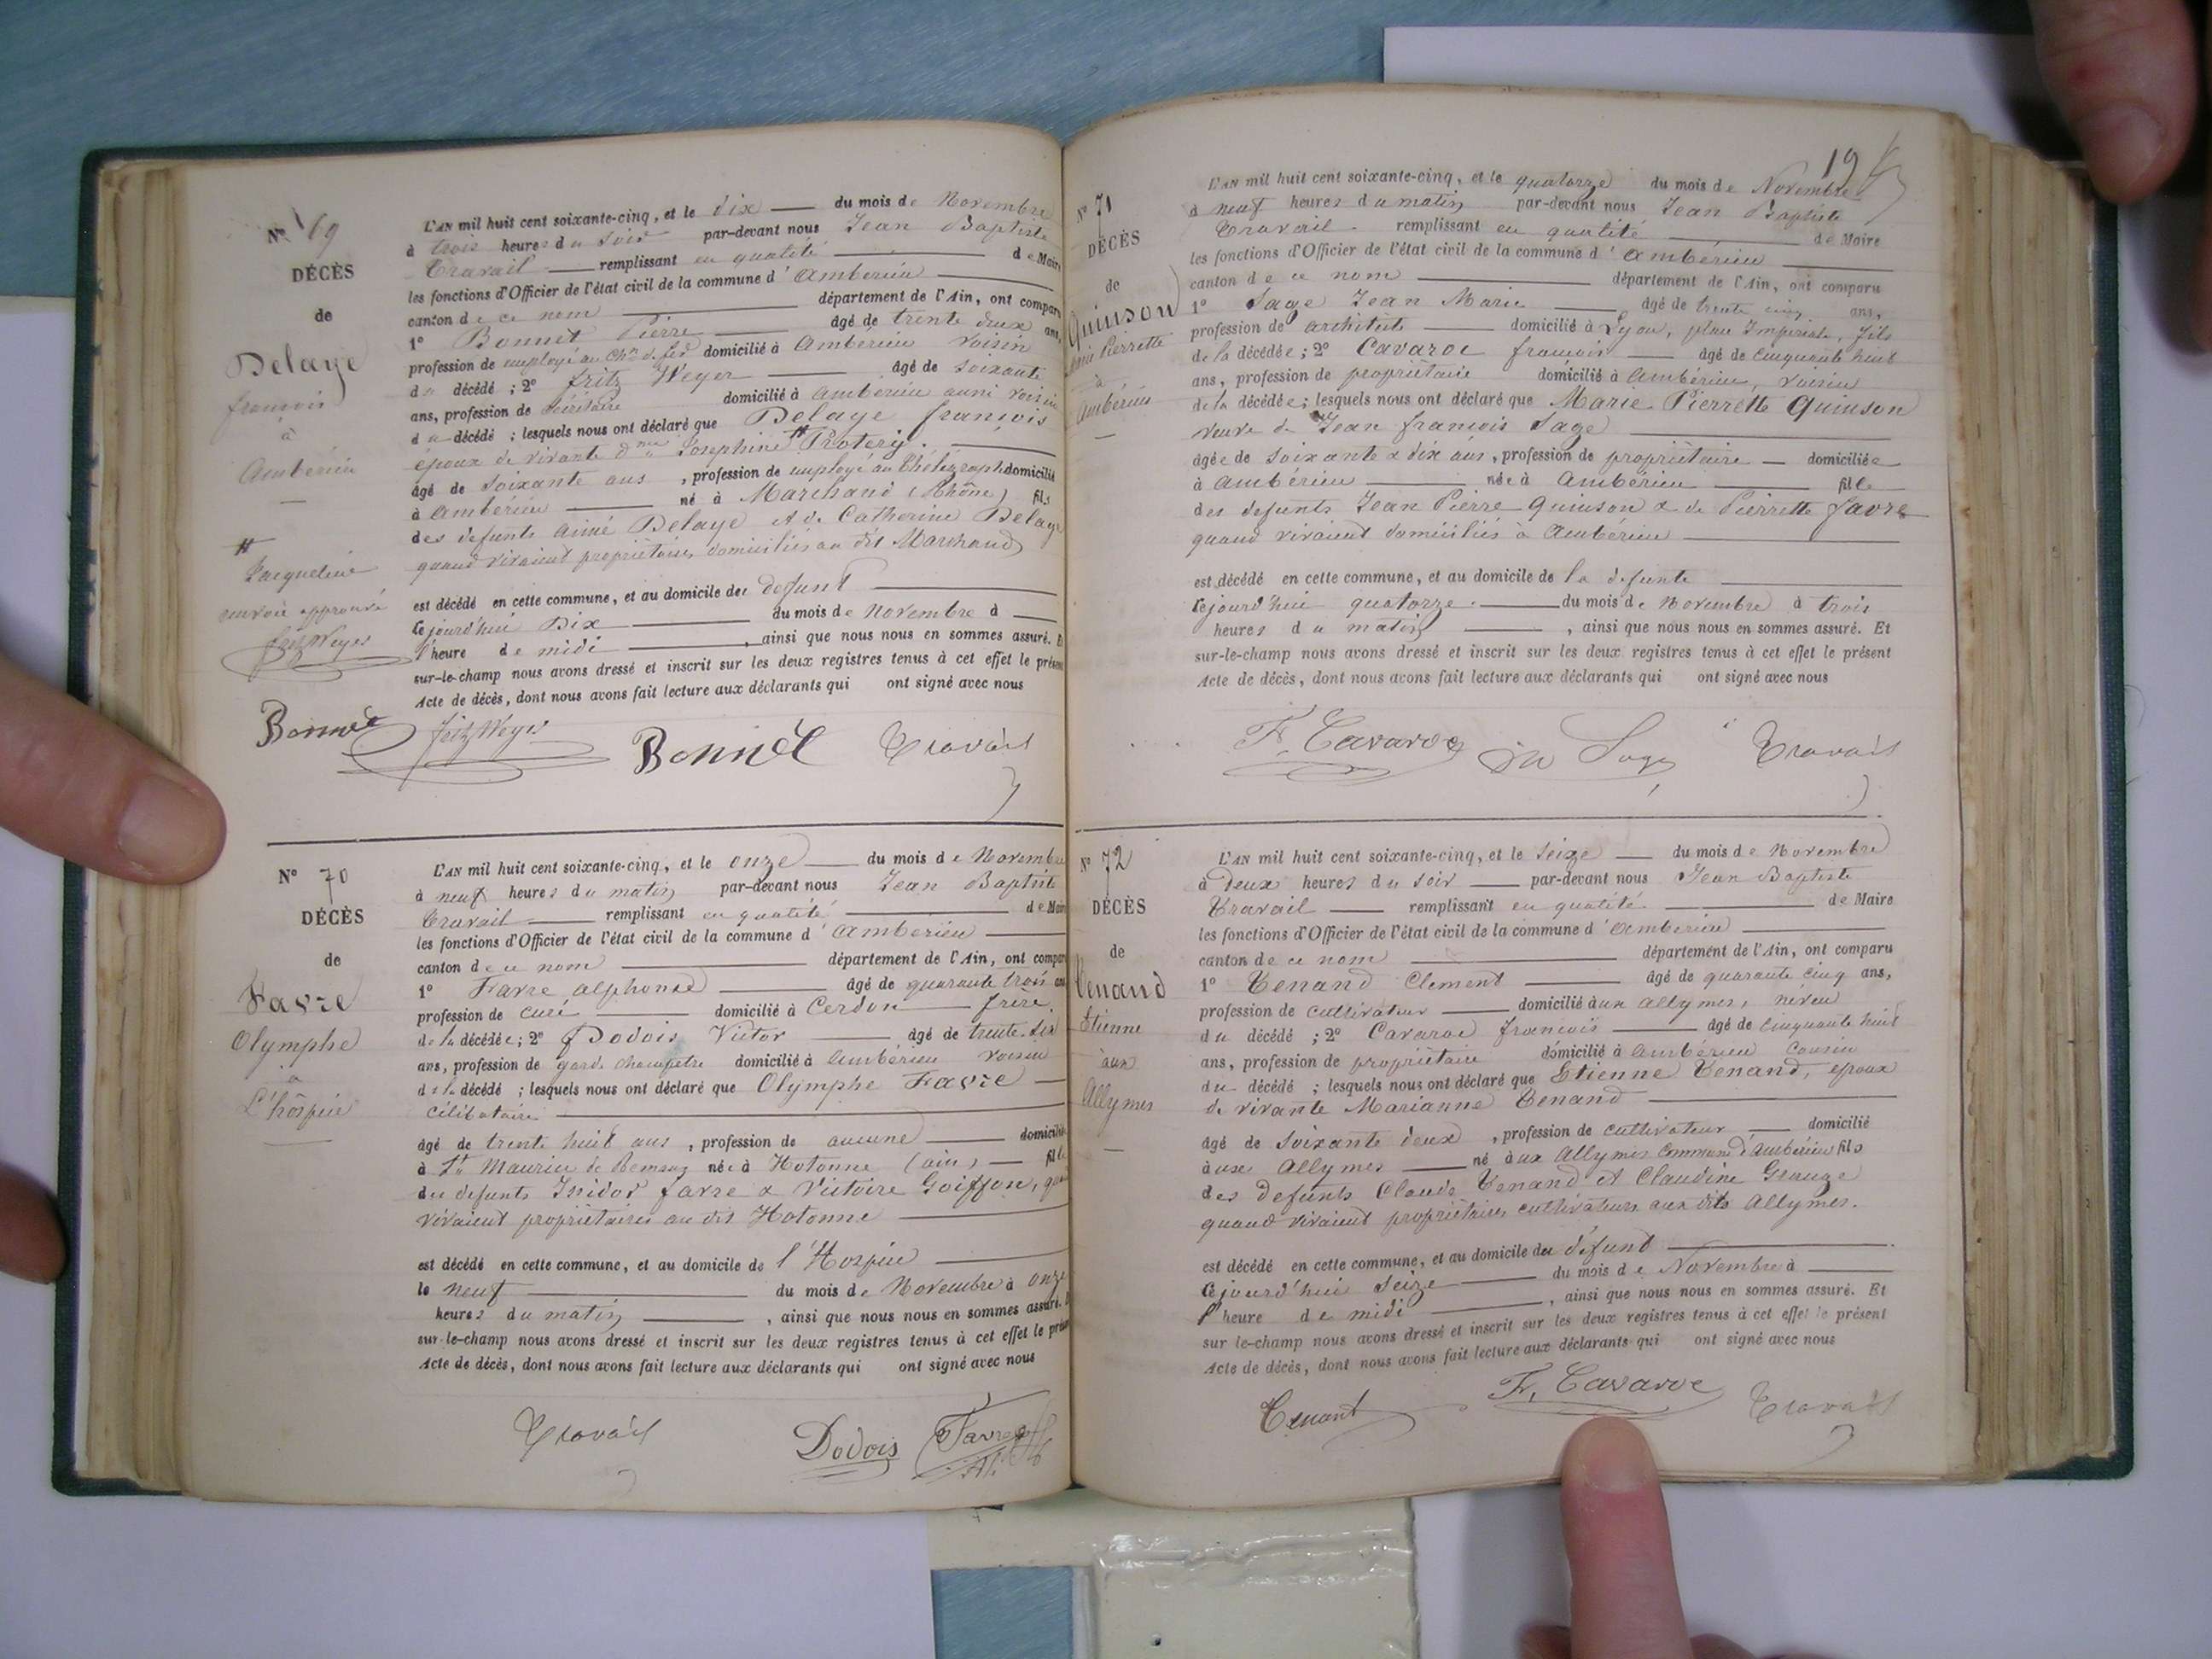 N° 69
DÉCÈS
de
Delaye
françois
à
Ambérieu
#
Jacqueline
renvoi approuvé
fritz Weyer
L'AN mil huit cent soixante-cinq, et le dix du mois de Novembre
à trois heures du soir par-devant nous Jean Baptiste
Travail remplissant en qualité de Maire
les fonctions d'Officier de l'état civil de la commune d'Ambérieu
canton de ce nom département de l'Ain, ont comparu
1° Bonnet Pierre âgé de trente deux ans,
profession de employé au Ch.n de fer domicilié à Ambérieu voisin
du décédé ; 2° fritz Weyer âgé de soixante
ans, profession de domicilié à Ambérieu aussi voisin
du décédé ; lesquels nous ont déclaré que Delaye françois
époux de vivante d.me Josephine # Protery.
âgé de soixante ans, profession de employé au Thélégraph domicilié
à Ambérieu né à Marchand (Rhône) fils
des defunts Aimé Delaye et de Catherine Delaye
quand vivaient propriétaires domiciliés au dit Marchand
est décédé en cette commune, et au domicile du defunt
cejourd'hui Dix du mois de Novembre à
l'heure de midi, ainsi que nous nous en sommes assuré. Et
sur-le-champ nous avons dressé et inscrit sur les deux registres tenus à cet effet le présent
Acte de décès, dont nous avons fait lecture aux déclarants qui ont signé avec nous
Bonnet fritz Weyer Bonnet Travail
N° 70
DÉCÈS
de
Favre
Olymphe
à
L'hôspice
L'AN mil huit cent soixante-cinq, et le onze du mois de Novembre
à neuf heures du matin par-devant nous Jean Baptiste
Travail remplissant en qualité de Maire
les fonctions d'Officier de l'état civil de la commune d'Ambérieu
canton de ce nom département de l'Ain, ont comparu
1° Favre alphonse âgé de quarante trois ans
profession de curé domicilié à Cerdon frère
de la décédée; 2° Dodois Victor âgé de trente six
ans, profession de garde champetre domicilié à Ambérieu voisin
de la décédé ; lesquels nous ont déclaré que Olymphe Favre
célibataire
âgé de trente huit ans, profession de aucune domicilié
à S.t Maurice de Remens née à Hotonne (ain) fille
des defunts Isidor favre & Victoire Goiffon, quand
vivaient propriétaires au dit Hotonne
est décédé en cette commune, et au domicile de l'Hospice
le neuf du mois de Novembre à onze
heures du matin, ainsi que nous nous en sommes assuré. Et
sur-le-champ nous avons dressé et inscrit sur les deux registres tenus à cet effet le présent
Acte de décès, dont nous avons fait lecture aux déclarants qui ont signé avec nous
Travail Dodois Favre
19
N° 71
DÉCÈS
de
Quinson
Marie Pierrette
à
Ambérieu
L'AN mil huit cent soixante-cinq, et le quatorze du mois de Novembre
à neuf heures du matin par-devant nous Jean Baptiste
Travail remplissant en qualité de Maire
les fonctions d'Officier de l'état civil de la commune d'Ambérieu
canton de ce nom département de l'Ain, ont comparu
1° Sage Jean Marie âgé de trente cinq ans,
profession de architecte domicilié à Lyon, place Impériale, fils
de la décédée; 2° Cavaroc françois âgé de cinquante huit
ans, profession de propriétaire domicilié à Ambérieu, voisin
de la décédée; lesquels nous ont déclaré que Marie Pierrette Quinson
veuve de Jean françois Sage
âgée de soixante & dix ans, profession de propriétaire domiciliée
à Ambérieu née à Ambérieu fille
des defunts Jean Pierre Quinson & de Pierrette favre
quand vivaient domiciliés à Ambérieu
est décédé en cette commune, et au domicile de la defunte
cejourd'hui quatorze du mois de Novembre à trois
heures du matin, ainsi que nous nous en sommes assuré. Et
sur-le-champ nous avons dressé et inscrit sur les deux registres tenus à cet effet le présent
Acte de décès, dont nous avons fait lecture aux déclarants qui ont signé avec nous
F. Cavaroc Sage Travail
N° 72
DÉCÈS
de
Tenand
Etienne
aux
Allymes
L'AN mil huit cent soixante-cinq, et le seize du mois de Novembre
à deux heures du soir par-devant nous Jean Baptiste
Travail remplissant en qualité de Maire
les fonctions d'Officier de l'état civil de la commune d'Ambérieu
canton de ce nom département de l'Ain, ont comparu
1° Tenand Clement âgé de quarante cinq ans,
profession de cultivateur domicilié aux allymes, neveu
du décédé ; 2° Cavaroc françois âgé de cinquante huit
ans, profession de propriétaire domicilié à Ambérieu Cousin
du décédé ; lesquels nous ont déclaré que Etienne Tenand, époux
de vivante Marianne Tenand
âgé de soixante deux, profession de cultivateur domicilié
aux Allymes né aux Allymes Commune d'Ambérieu fils
des defunts Claude Tenand et Claudine Grauge
quand vivaient propriétaires cultivateurs aux dits Allymes.
est décédé en cette commune, et au domicile du défunt
cejourd'hui seize du mois de Novembre à
l'heure de midi, ainsi que nous nous en sommes assuré. Et
sur le-champ nous avons dressé et inscrit sur les deux registres tenus à cet effet le présent
Acte de décès, dont nous avons fait lecture aux déclarants qui ont signé avec nous
Tenant F. Cavaroc Travail